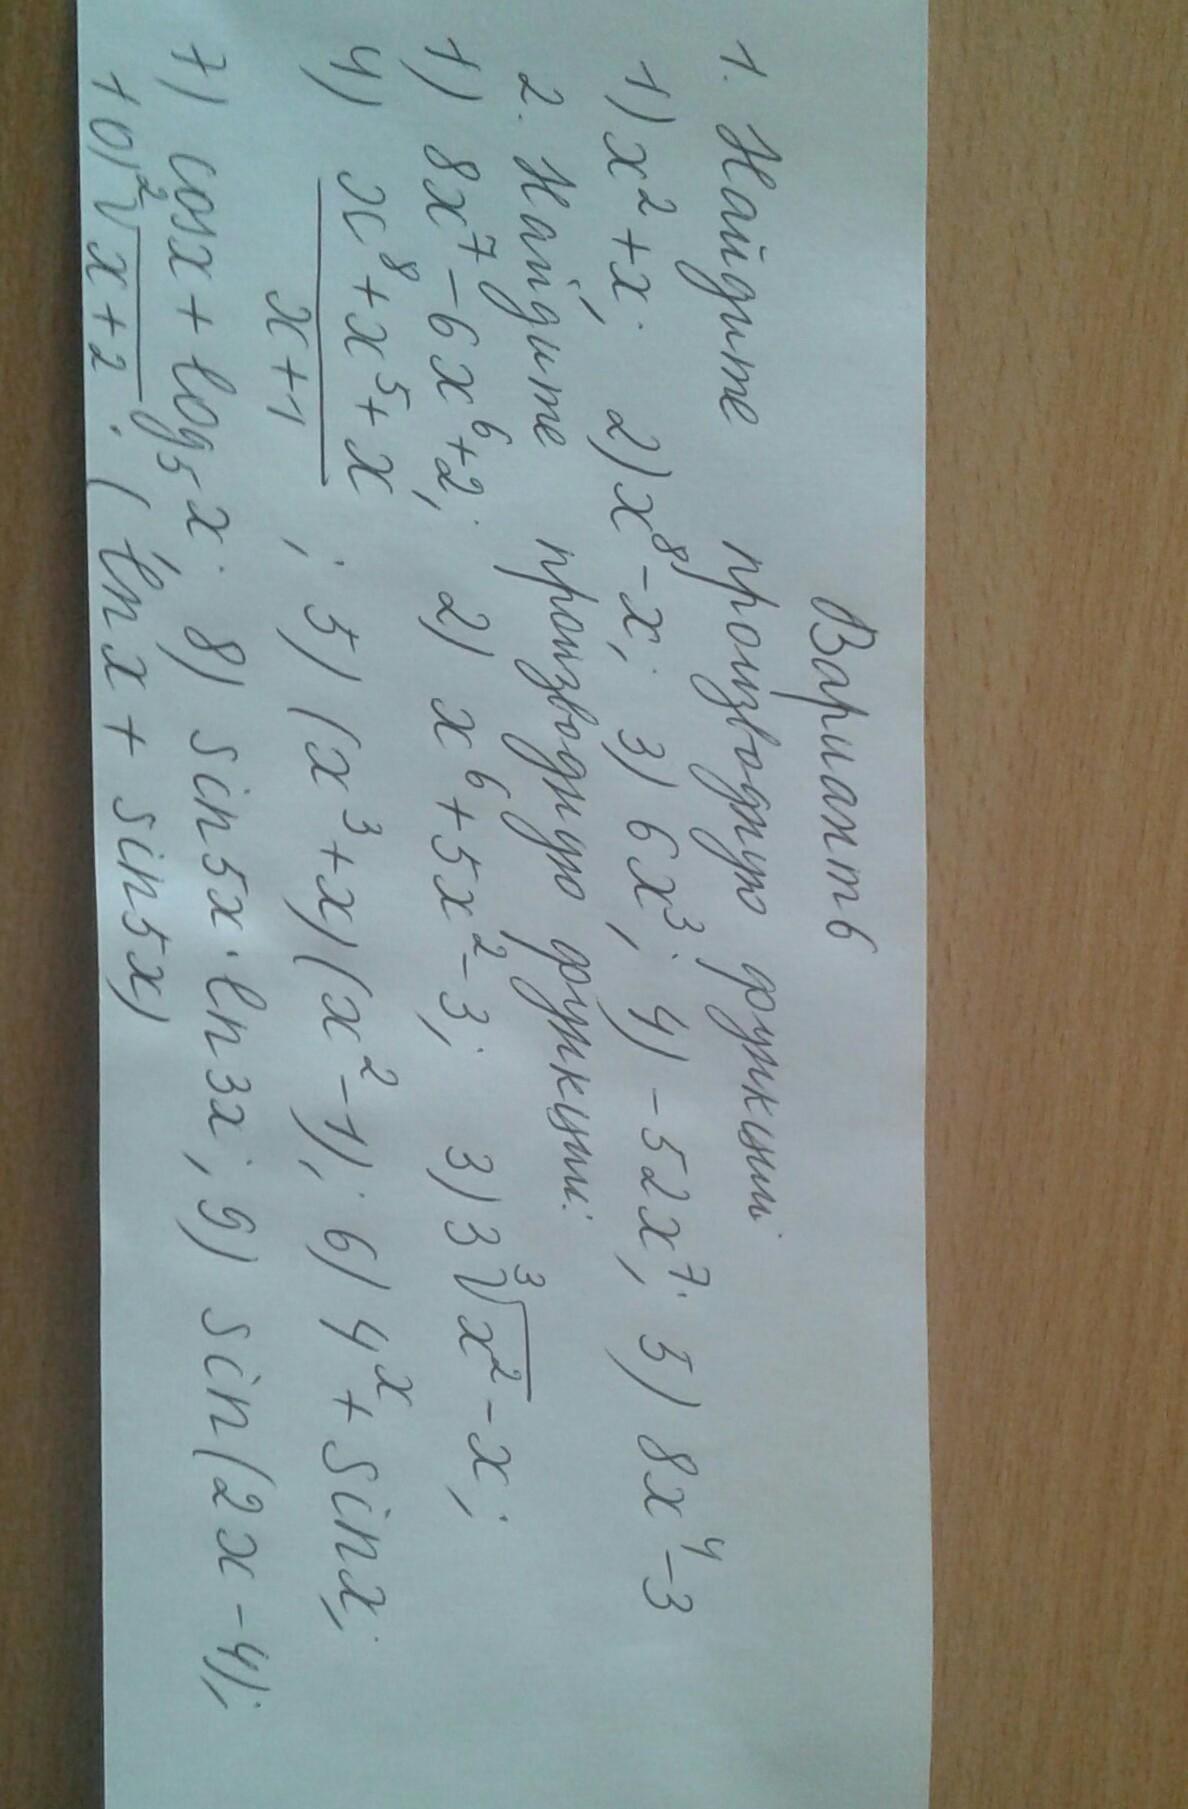 Вариант 6
1. Найдите производную функции
1) x² + x; 2) x⁸ - x; 3) 6x³; 4) - 52x⁷; 5) 8x⁴ - 3
2. Найдите производную функции:
1) 8x⁷ - 6x⁶ + 2; 2) x⁶ + 5x² - 3; 3) 3∛(x²) - x;
4) (x⁸ + x⁵ + x)/(x + 1); 5) (x³ + x)(x² - 1); 6) 4ˣ + sin x;
7) cos x + log₅ x; 8) sin 5x · ln 3x; 9) sin(2x - 4);
10) ²√(x + 2) · (ln x + sin 5x)